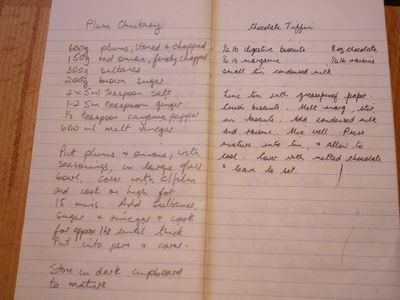 Plum Chutney
600g plums, stoned & chopped
150g red onion, finely chopped
300g sultanas
200g brown sugar
2 x 5ml teaspoon salt
1-2 5ml teaspoon ginger
½ teaspoon cayenne pepper
600 ml malt vinegar
Put plums & onions, with
seasonings, in large glass
bowl, cover with c/film
and cook on high for
15 mins. Add sultanas,
sugar & vinegar & cook
for approx 1hr until thick
Put into jars & cover.
Store in dark cupboard
to mature
Chocolate Tiffin
½ lb digestive biscuits 8oz chocolate
¼ lb margarine ¼ lb raisins
small tin condensed milk
Line tin with greaseproof paper.
Crush biscuits. Melt marg, stir
in biscuits. Add condensed milk
and raisins. Mix well. Press
mixture into tin, & allow to
cool. Cover with melted chocolate
& leave to set.